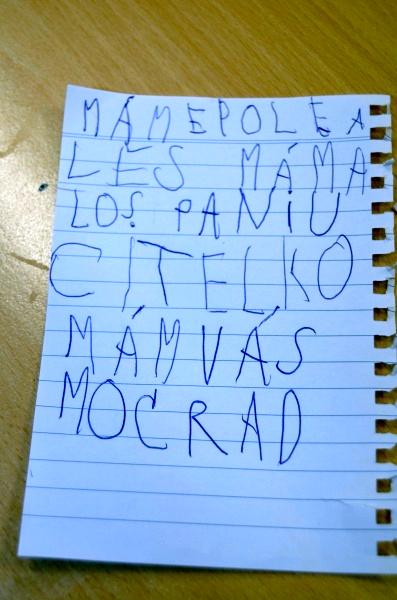 MÁMEPOLE A
LES MÁMA
LOS PANIU
CITELKO
MÁMVÁS
MOCRAD